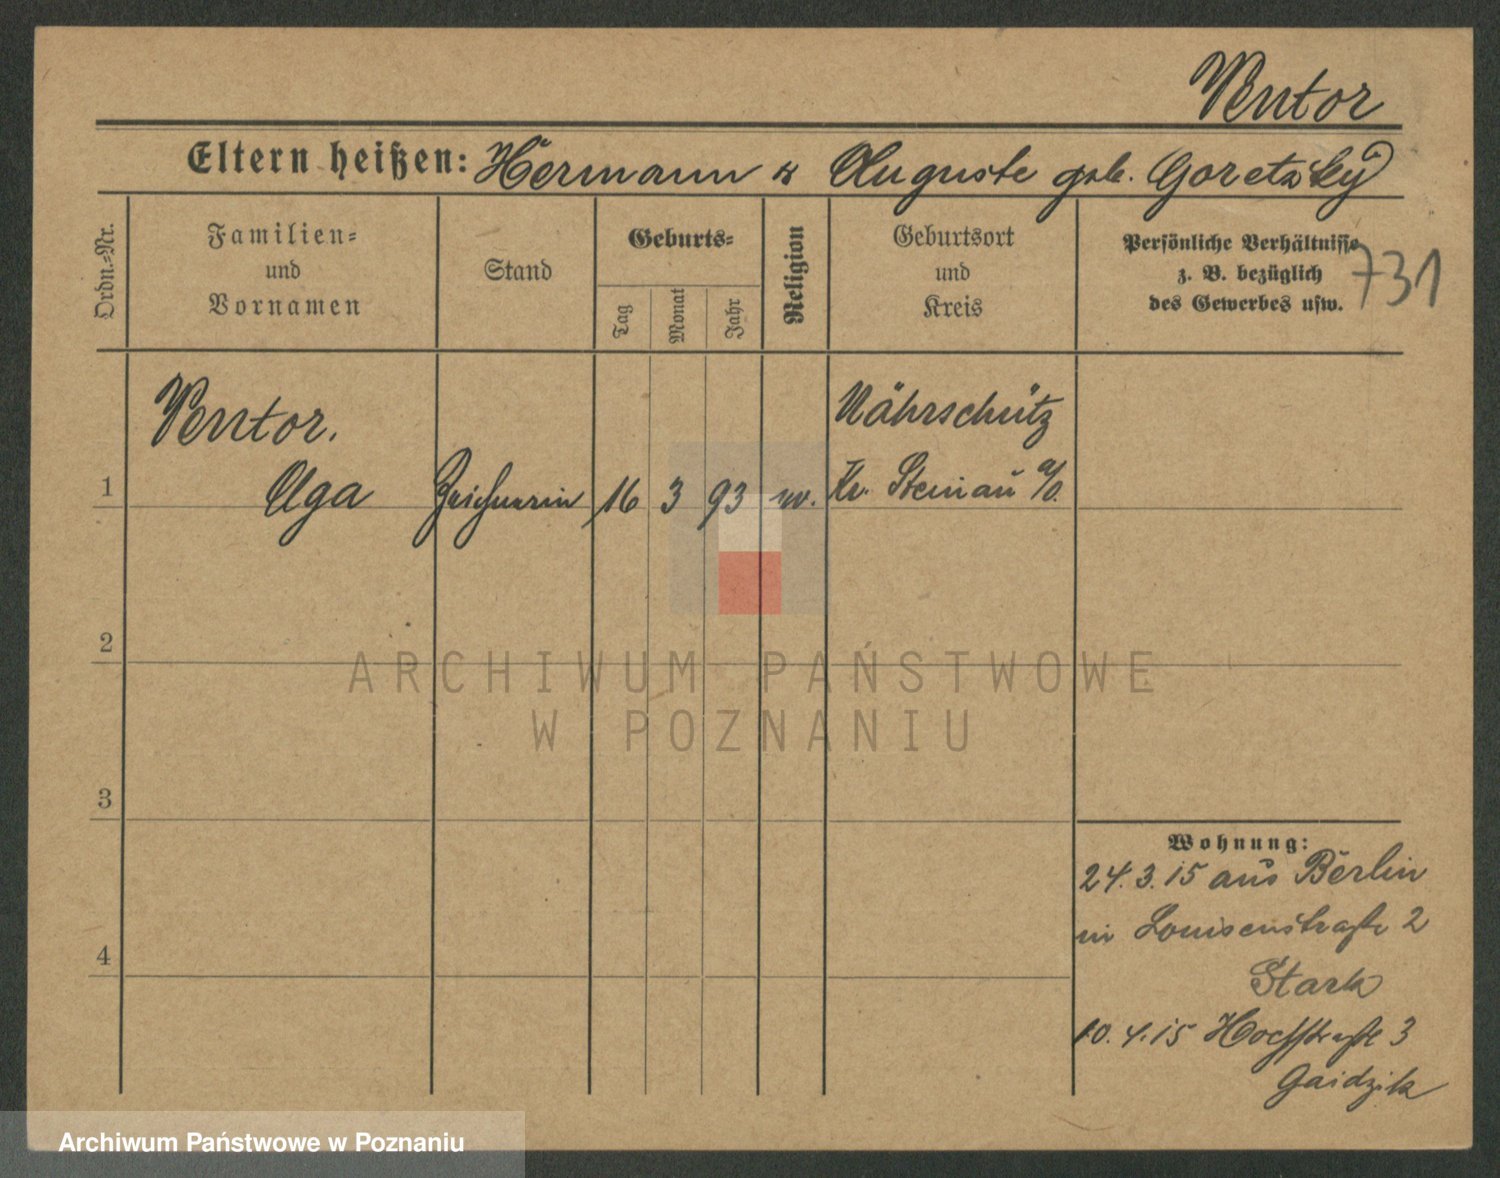 Ventor
Eltern heißen: Hermann u Auguste geb. Goretzky
Ordn.-Nr.
Familien-
und
Vornamen
Stand
Geburts-
Tag
Monat
Jahr
Religion
Geburtsort
und
Kreis
Persönliche Verhältnisse
z. B. bezüglich
des Gewerbes usw.
731
Ventor.
Nährschütz
1 Olga Zeichnerin 16 3 93 ev. Kr. Steinau a/O.
2
3
4
Wohnung:
24.3.15 aus Berlin
in Louisenstraße 2
Stark
10.4.15 Hochstraße 3
Gaidzik
ARCHIWUM PAŃSTWOWE
W POZNANIU
Archiwum Państwowe w Poznaniu